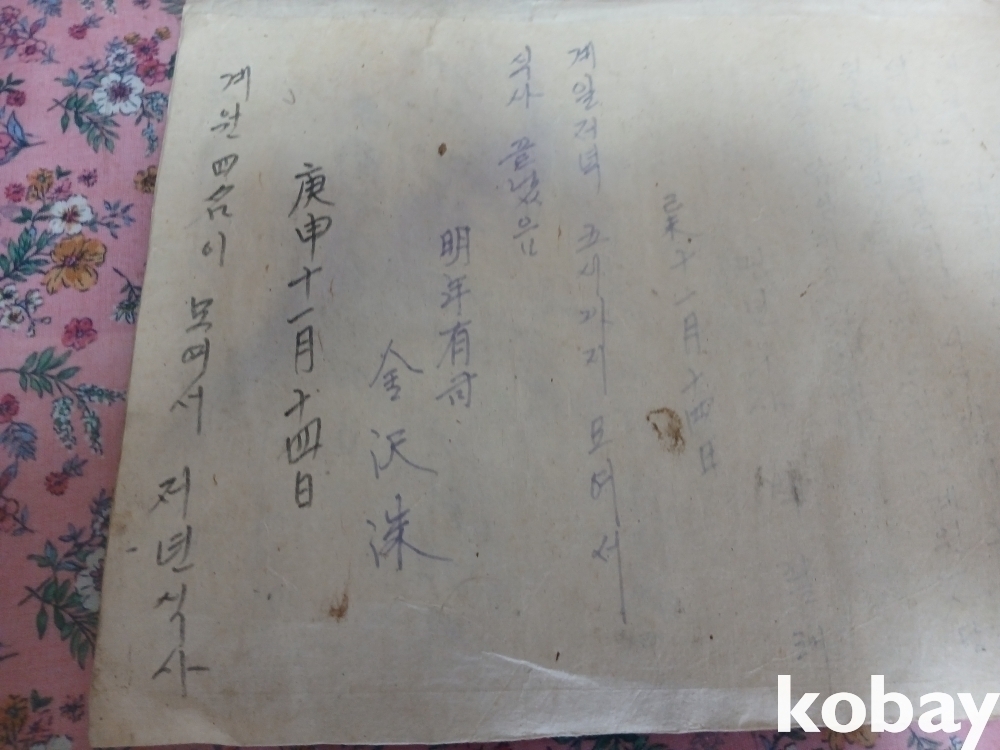 己未 十一月 十四日
계일저녁 五시까지 모여서
식사 끝냈음
明年有司
金沢洙
庚申十一月十四日
계원四名이 모여서 저녁식사
kobay